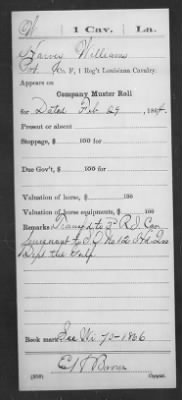 W 1 Cav. La.
Harris William
Pvt, Co. F, 1 Reg't Louisiana Cavalry.
Appears on
Company Muster Roll
for Dated Feb 29, 1864.
Present or absent
Stoppage, $ 100 for
Due Gov't, $ 100 for
Valuation of horse, $ 100
Valuation of horse equipments, $ 100
Remarks: Transf'd to 3d R.I. Cav
pursuant to S.O. No 42 Hd. Qrs
Dept the Gulf.
Book mark:
(359) Copyist.